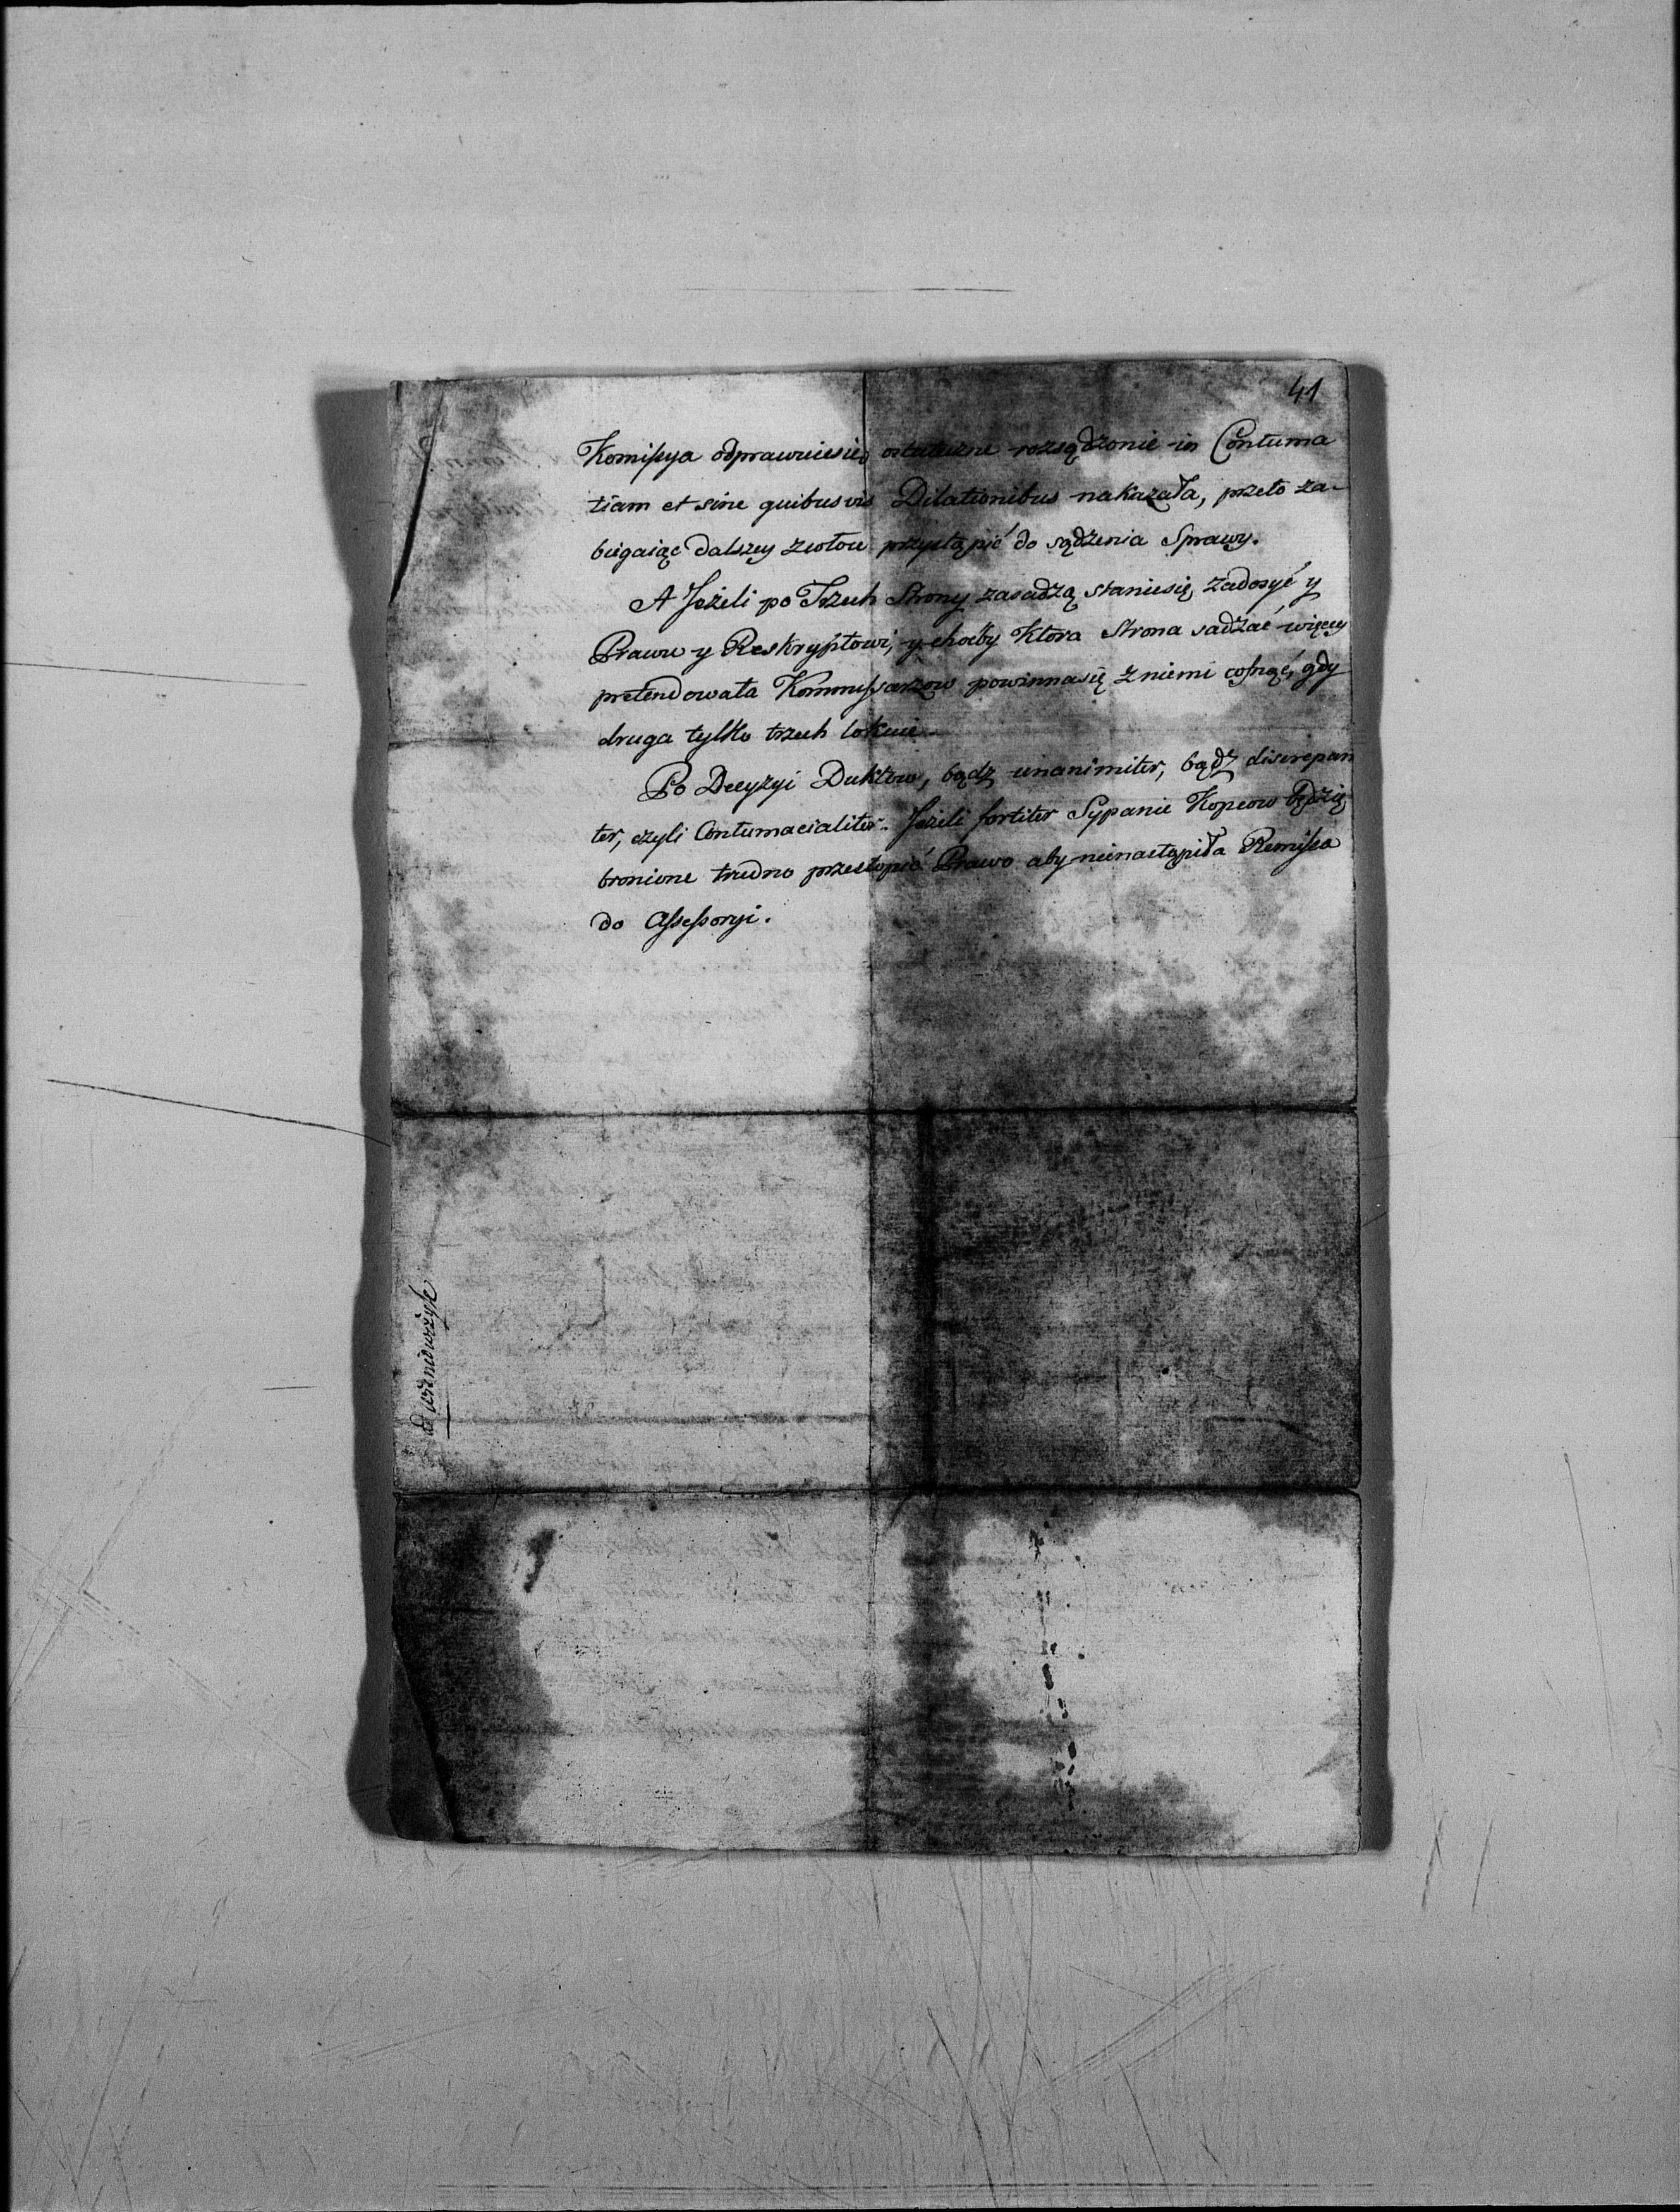 41
Komissya odprawuiesię ostateczne rozsądzenie in Contuma
tiam et sine quibusvis Dilationibus nakazała, przeto za-
biegaiąc dalszey zwłoce przystąpić do sądzenia Sprawy.
A Jeżeli po Trzech Strony zasadzą staniesię zadosyć y
Prawu y Reskryptowi, y choćby Ktora Strona sadzać więcey
pretendowała Kommissarzow powinnasię z niemi cofnąć, gdy
druga tylko trzech lokuie
Po Decyzyi Duktow, bądź unanimiter, bądź discrepan
ter, czyli Contumacialiter. Jeżeli fortiter Sypanie Kopcow będzie
bronione trudno przestąpić Prawo aby nienastąpiła Remissa
do Assessoryi.